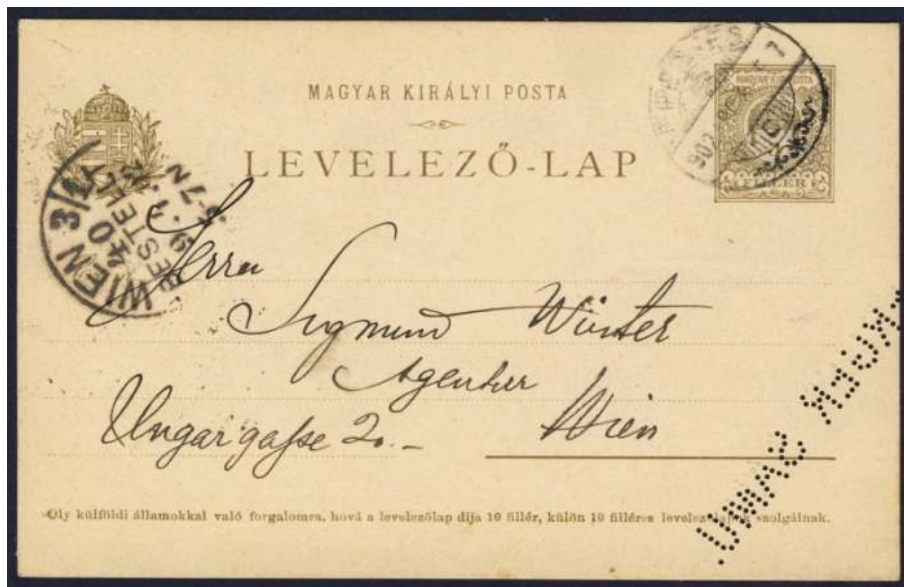 MAGYAR KIRÁLYI POSTA
LEVELEZŐ-LAP
FILLÉR
WIEN 3/1
40
BESTELLT
Herrn
Sigmund Winter
Agentur
Ungargasse 20.–
Wien
Oly külföldi államokkal való forgalomra, hová a levelezőlap díja 10 fillér, külön 10 filléres levelezőlapok szolgálnak.